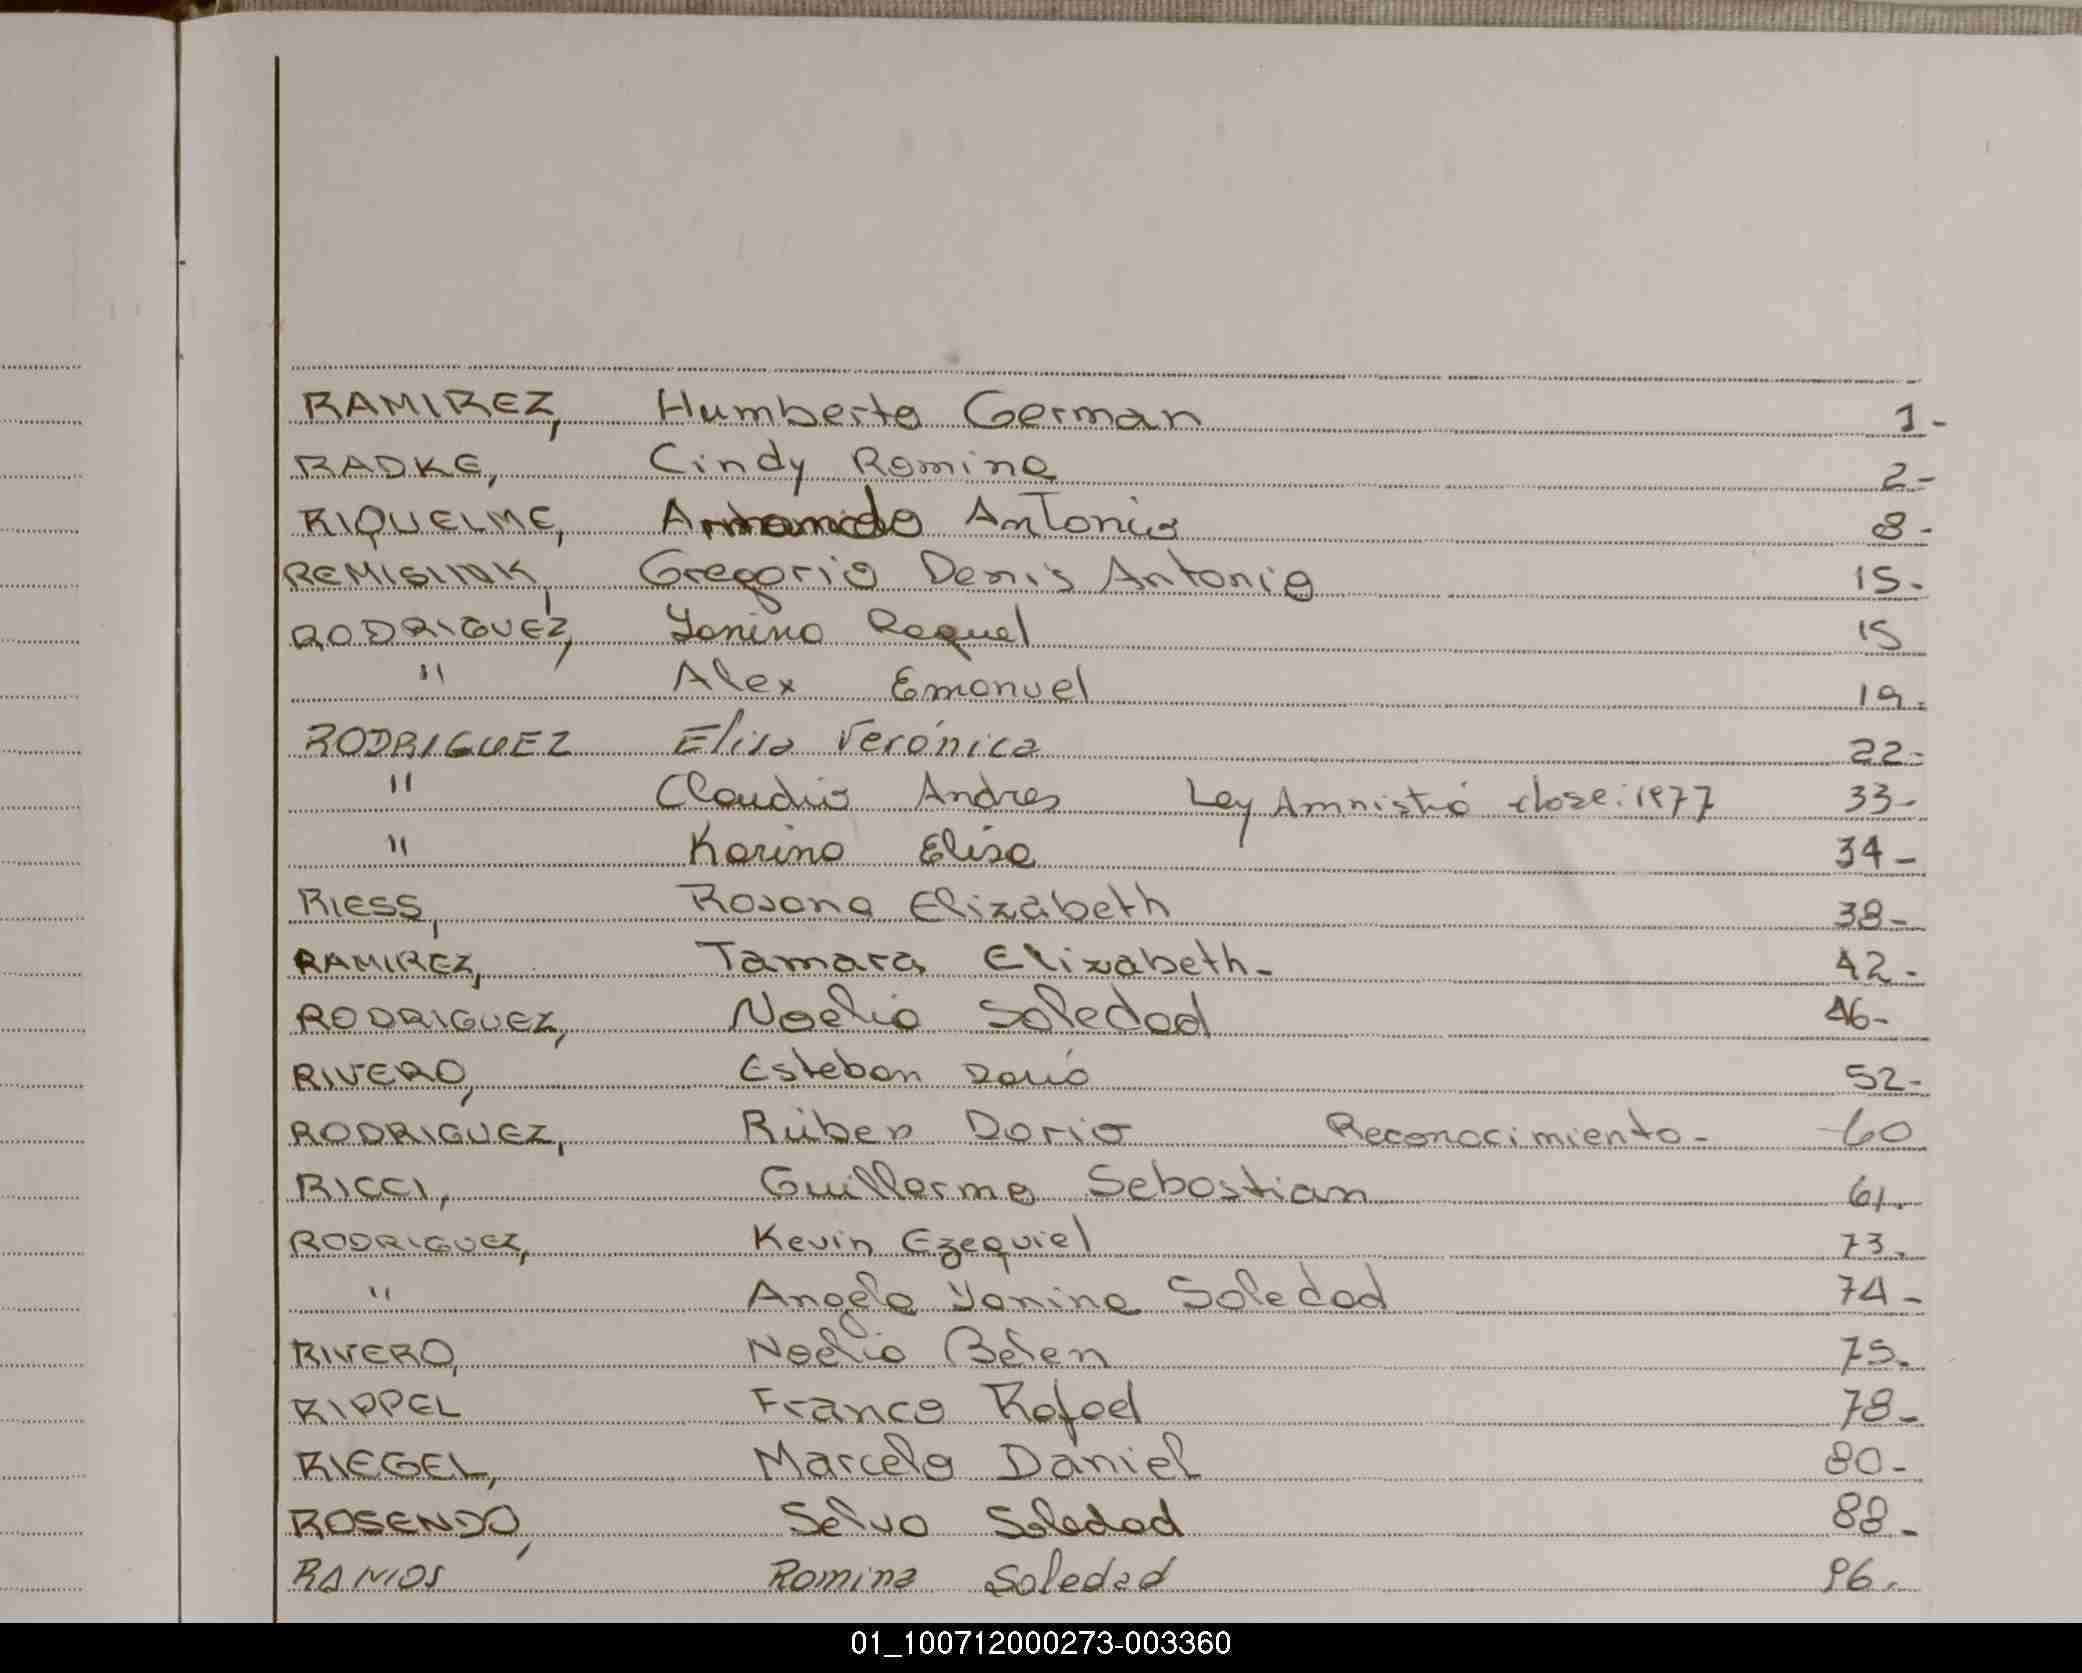 RAMIREZ, Humberto German 1-
RADKE, Cindy Romina 2-
RIQUELME, Armando Antonio 8-
REMISINK, Gregorio Denis Antonio 15-
RODRIGUEZ, Yanina Raquel 15
" Alex Emanuel 19-
RODRIGUEZ Elisa Verónica 22-
" Claudio Andres Ley Amnistia clase: 1977 33-
" Karina Elisa 34-
RIESS, Rosana Elizabeth 38-
RAMIREZ, Tamara Elizabeth- 42-
RODRIGUEZ, Noelia Soledad 46-
RIVERO, Esteban Darió 52-
RODRIGUEZ, Rúben Dario Reconocimiento- 60
RICCI, Guillermo Sebastian 61-
RODRIGUEZ, Kevin Ezequiel 73-
" Angela Yanina Soledad 74-
RIVERO, Noelia Belen 75-
RIPPEL Franco Rafael 78-
RIEGEL, Marcelo Daniel 80-
ROSENDO, Selva Soledad 88-
RAMOS Romina Soledad 96-
01_100712000273-003360